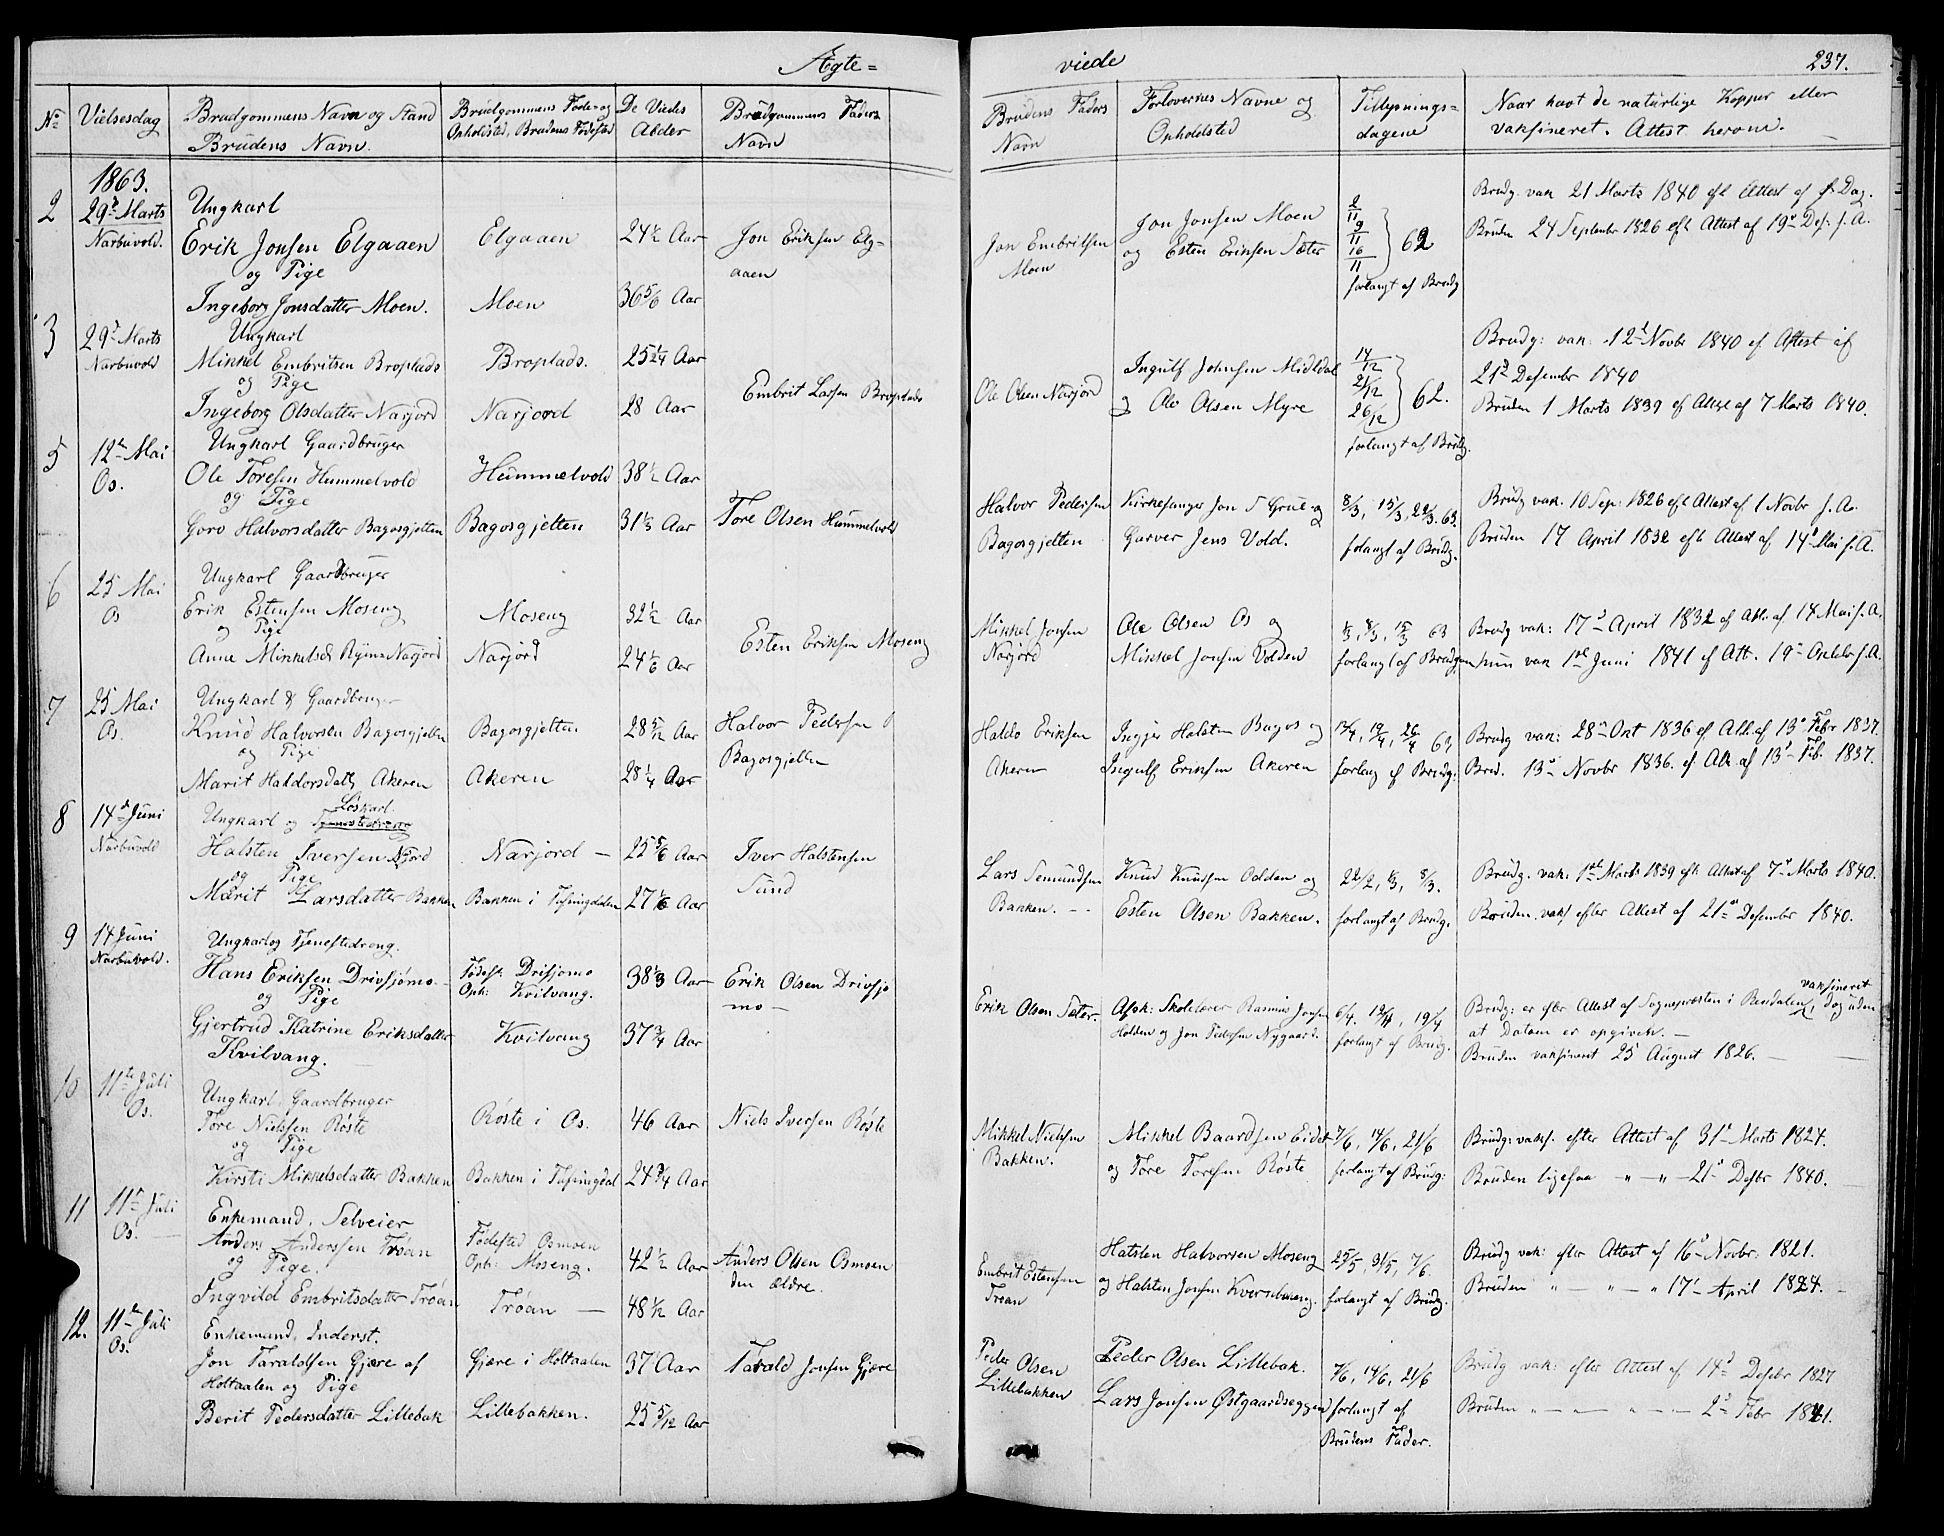 Ægte=
viede
237.
No
Vielsesdag
Brudgommens Navn og Stand
Brudens Navn.
Brudgommens Føde- og
Opholdsted, Brudens Fødested
De Viedes
Alder
Brudgommens Faders
Navn
Brudens Faders
Navn
Forlovernes Navne og
Opholdsted
Tillysnings=
dagene
Naar havt de naturlige Kopper eller
vaksineret. Attest herom.
1863.
2
29d Marts
Narbuvold.
Ungkarl
Erik Jonsen Elgaaen
og Pige
Ingeborg Jonsdatter Moen.
Elgaaen
Moen
24½ Aar
36 5/6 Aar
Jon Eriksen Elg-
aaen
Jon Embritsen
Moen
Jon Jonsen Moen
og Esten Eriksen Sæter
2/11
9/11
16/11
62
forlangt af Brudg
Brudg. vak 21 Marts 1840 efl Attest af s. Dag.
Bruden 24 September 1826 efl Attest af 19d Des. s. A.
3
29d Marts
Narbuvold
Ungkarl
Mikkel Embritsen Broplads
og Pige
Ingeborg Olsdatter Narjord
Broplads.
Narjord
25¼ Aar
28 Aar
Embrit Larsen Broplads
Ole Olsen Narjord
Ingulf Johnsen Midtdal
og Ole Olsen Myre
14/12
21/12
26/12
62.
forlangt af Brudg.
Brudg: vak. 12t Novbr 1840 ef. Attest af
21d Desember 1840
Bruden 1 Marts 1839 ef Attest af 7 Marts 1840.
5
12te Mai
Os.
Ungkarl Gaardbruger
Ole Toresen Hummelvold
og Pige
Goro Halvorsdatter Bagosgjelten
Hummelvold
Bagosgjelten
38½ Aar
31⅓ Aar
Tore Olsen Hummelvold
Halvor Pedersen
Bagosgjelten
Kirkesanger Jon S Grue og
Garver Jens Vold.
8/3, 15/3, 22/3. 63.
folangt af Brudg.
Brudg vak. 10 Sep. 1826 efl Attest af 1 Novbr s. A.
Bruden 17 April 1832 efl Attest af 14d Mai s. A.
6
25 Mai
Os
Ungkarl Gaardbruger
Erik Estensen Moseng
og Pige
Anne Mikkelsd. Narjord
Moseng
Narjord
32½ Aar
24 1/6 Aar
Esten Eriksen Moseng
Mikkel Jonsen
Narjord
Ole Olsen Os og
Mikkel Jonsen Volden
1/3, 8/3, 15/3 63
forlangt af Brudgom
Brudg vak: 17d April 1832 af Att. af 14 Mai s. A.
hun vak 1ste Juni 1841 ef Att. 19d s. A.
7
25 Mai
Os.
Ungkarl & Gaardbruger
Knud Halvorsen Bagosgjelten
og Pige
Marit Haldorsdatt. Akeren
Bagosgjelten
Akeren
28 5/12 Aar
28¼ Aar
Halvor Pedersen
Bagosgjelten
Haldo Eriksen
Akeren
Halsten Bagos og
Ingulf Eriksen Akeren
12/4, 19/4, 26/4 63
forlang af Brudg.
Brudg vak: 28d Okt 1836 ef Att. af 13d Febr 1837.
Brud. 13d Novbr 1836. ef. Att. af 13d Feb. 1837.
8
14de Juni
Narbuvold
Ungkarl og Tjenestedreng
Løskarl.
Halsten Iversen Njord
og Pige
Marit Larsdatter Bakken
Narjord
Bakken i Tufsingdalen
25 5/6 Aar
27 1/6 Aar
Iver Halstensen
Sund
Lars Semundsen
Bakken.
Knud Knudsen Odden og
Esten Olsen Bakken.
22/2, 1/3, 8/3.
forlangt af Brudg.
Brudg. vak. 1ste Marts 1839 efl. Attest af 7d Marts 1840.
Bruden. vaks efter Attest af 21de Desember 1840.
9
14 Juni
Narbuvold.
Ungkarl og Tjenestedreng.
Hans Eriksen Drivsjømo
og Pige
Gjertrud Katrine Eriksdatter
Kvilvang.
Fødest: Drifsjømo
Oph: Kvilvang.
Kvilvang
38⅓ Aar
37¾ Aar
Erik Olsen Drivsjø
mo
Erik Olsen Sæter.
Afsk: Skolelærer Rasmus Jonsen
Holden og Jon Pedersen Nygaard
6/4. 12/4, 19/4
forlangt af Brudg.
Brudg: er efter Attest af Sognepræsten i Rendalen vaksineret, dog uden
at Datum er opgivet.
Bruden vaksineret 25 August 1826.
10
11te Juli
Os.
Ungkarl. Gaardbruger
Tore Nielsen Røste
og Pige
Kirsti Mikkelsdatter Bakken
Røste i Os.
Bakken i Tufsingdal
46 Aar
24¾ Aar
Niels Iversen Røste
Mikkel Nielsen
Bakken.
Mikkel Baardsen Eidet
og Tore Toresen Røste
7/6, 14/6, 21/6
forlangt af Brudg:
Brudg: vaks. efter Attest af 31d Marts 1827.
Bruden ligesaa — " — " — 21d Desbr 1840.
11
11te Juli
Os.
Enkemand, Selveier
Anders Anderssen Trøan
og Pige.
Ingvild Embritsdatter Trøan
Fødested Osmoen
Oph: Moseng.
Trøan
42½ Aar
48 1/12 Aar
Anders Olsen Osmoen
den ældre.
Embrit Estensen
Trøan
Halsten Halvorsen Moseng
og Halsten Jonsen Kvernbæng.
25/5, 31/5, 7/6
forlangt af Brudg.
Brudg vak: efter Attest af 16d Novbr. 1821.
Bruden " — " — " 17d April 1824.
12.
11te Juli
Os.
Enkemand, Inderst.
Jon Taraldsen Gjære af
Holtaalen og Pige
Berit Pedersdatter Lillebak
Gjære i Holtaalen
Lillebakken.
37 Aar
25 5/12 Aar
Tarald Jonsen Gjære
Peder Olsen
Lillebakken
Peder Olsen Lillebak.
Lars Jonsen Østgaardseggen
7/6, 14/6, 21/6
forlangt af
Brudens Fader.
Brudg vak: efter Attest af 14d Desebr 1827
Bruden " — " — " — 2d Febr 1841.